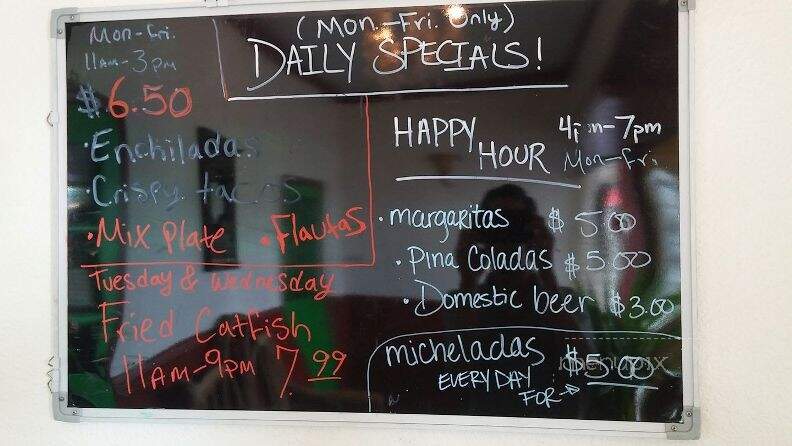 (Mon.-Fri. Only)
DAILY SPECIALS!
Mon-Fri.
11am-3pm
$6.50
• Enchiladas
• Crispy tacos
• Mix Plate • Flautas
Tuesday & Wednesday
Fried Catfish
11AM-9PM 7.99
HAPPY HOUR
4pm-7pm
Mon-Fri.
• margaritas $5.00
• Pina Coladas $5.00
• Domestic beer $3.00
micheladas $5.00
EVERY DAY
FOR→
menupix